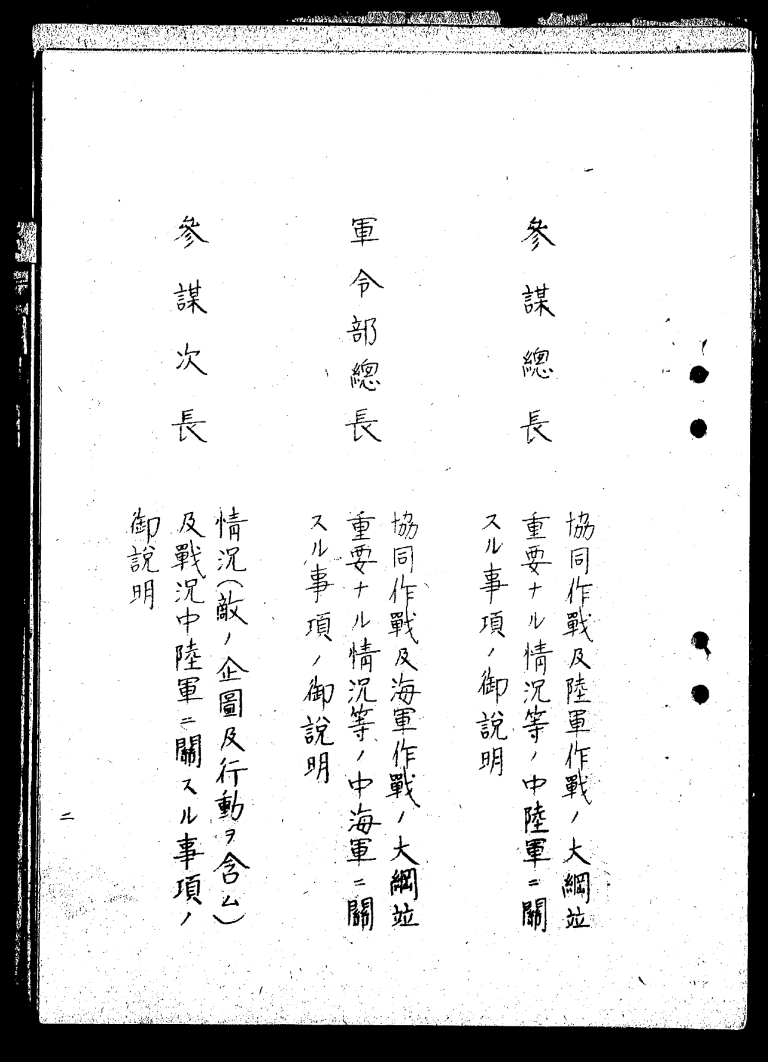 參謀總長
協同作戰及陸軍作戰ノ大綱竝
重要ナル情況等ノ中陸軍ニ關
スル事項ノ御説明
軍令部總長
協同作戰及海軍作戰ノ大綱竝
重要ナル情況等ノ中海軍ニ關
スル事項ノ御説明
參謀次長
情況(敵ノ企圖及行動ヲ含ム)
及戰況中陸軍ニ關スル事項ノ
御説明
二